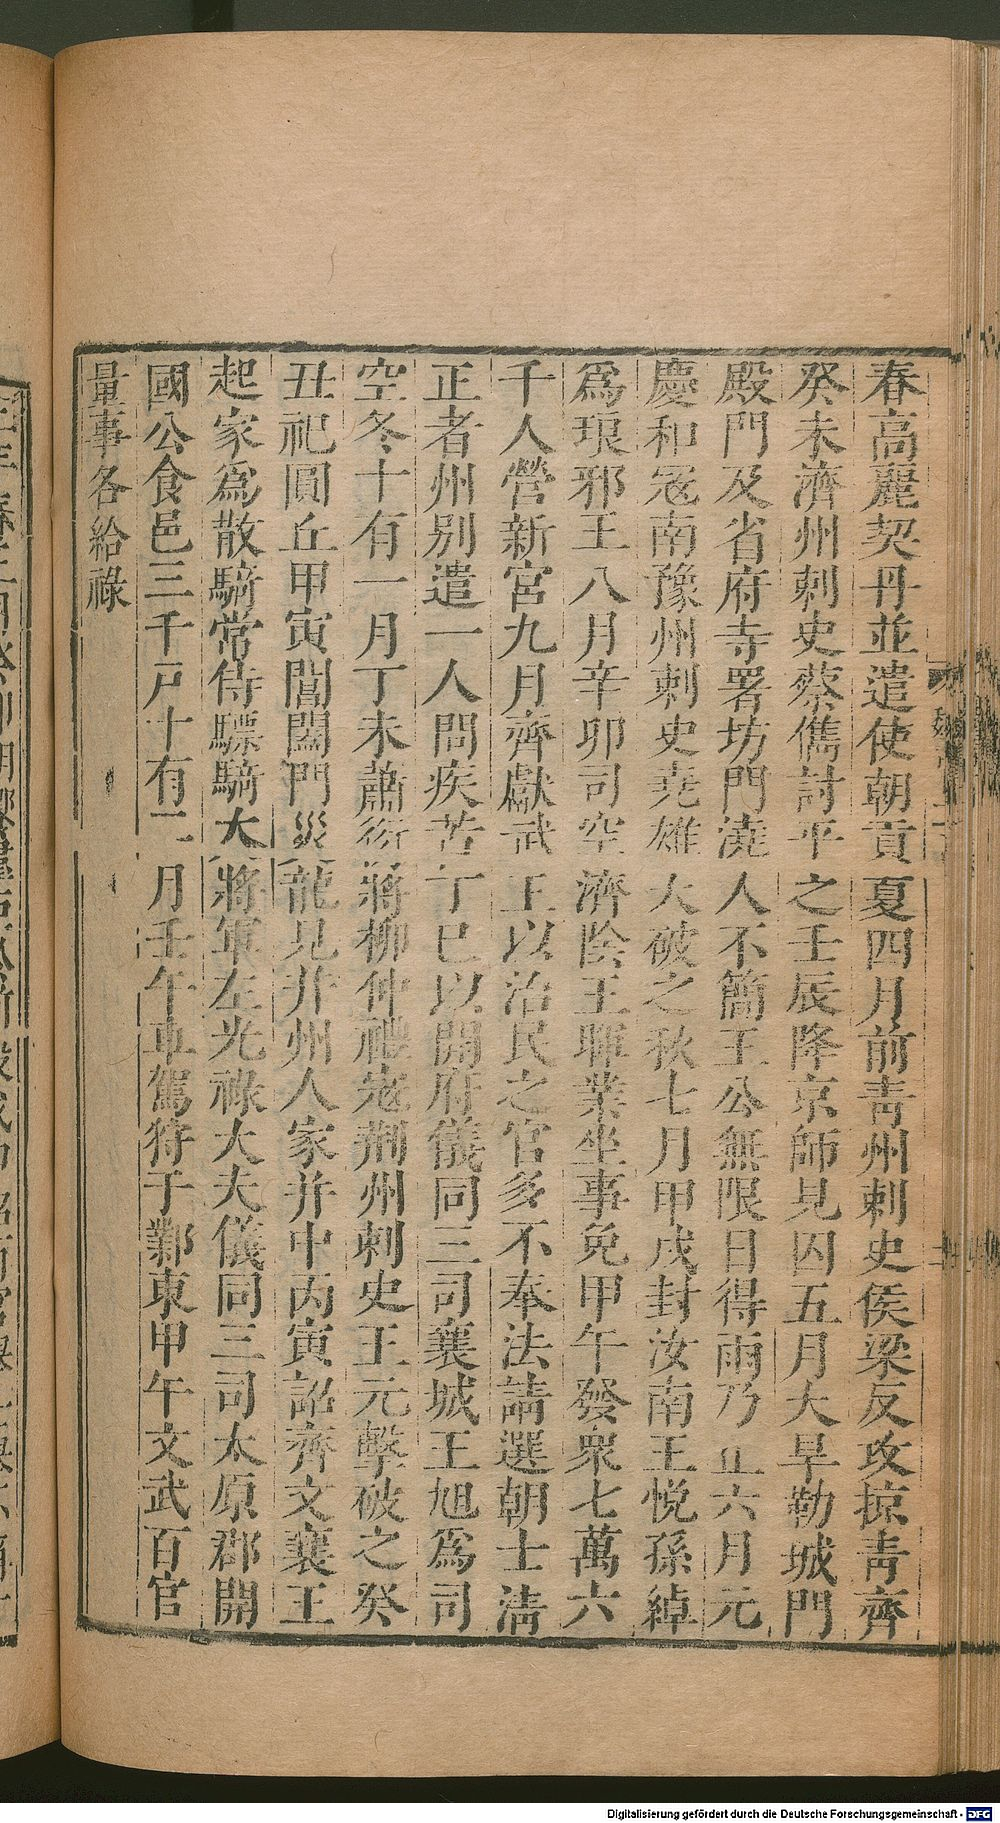 春高麗契丹並遣使朝貢夏四月前青州刺史侯梁反攻掠青齊
癸未濟州刺史蔡儁討平之壬辰降京師見囚五月大旱勒城門
殿門及省府寺署坊門澆人不簡王公無限日得雨乃止六月元
慶和寇南豫州刺史堯雄大破之秋七月甲戌封汝南王悅孫綽
爲琅邪王八月辛卯司空濟陰王暉業坐事免甲午發衆七萬六
千人營新宮九月齊獻武王以治民之官多不奉法請選朝士清
正者州別遣一人問疾苦丁巳以開府儀同三司襄城王旭爲司
空冬十有一月丁未蕭衍將柳仲禮寇荆州刺史王元擊破之癸
丑祀圓丘甲寅閶闔門災龍見并州人家井中丙寅詔齊文襄王
起家爲散騎常侍驃騎大將軍左光祿大夫儀同三司太原郡開
國公食邑三千戸十有二月壬午車駕狩于鄴東甲午文武百官
量事各給祿
Digitalisierung gefördert durch die Deutsche Forschungsgemeinschaft - DFG